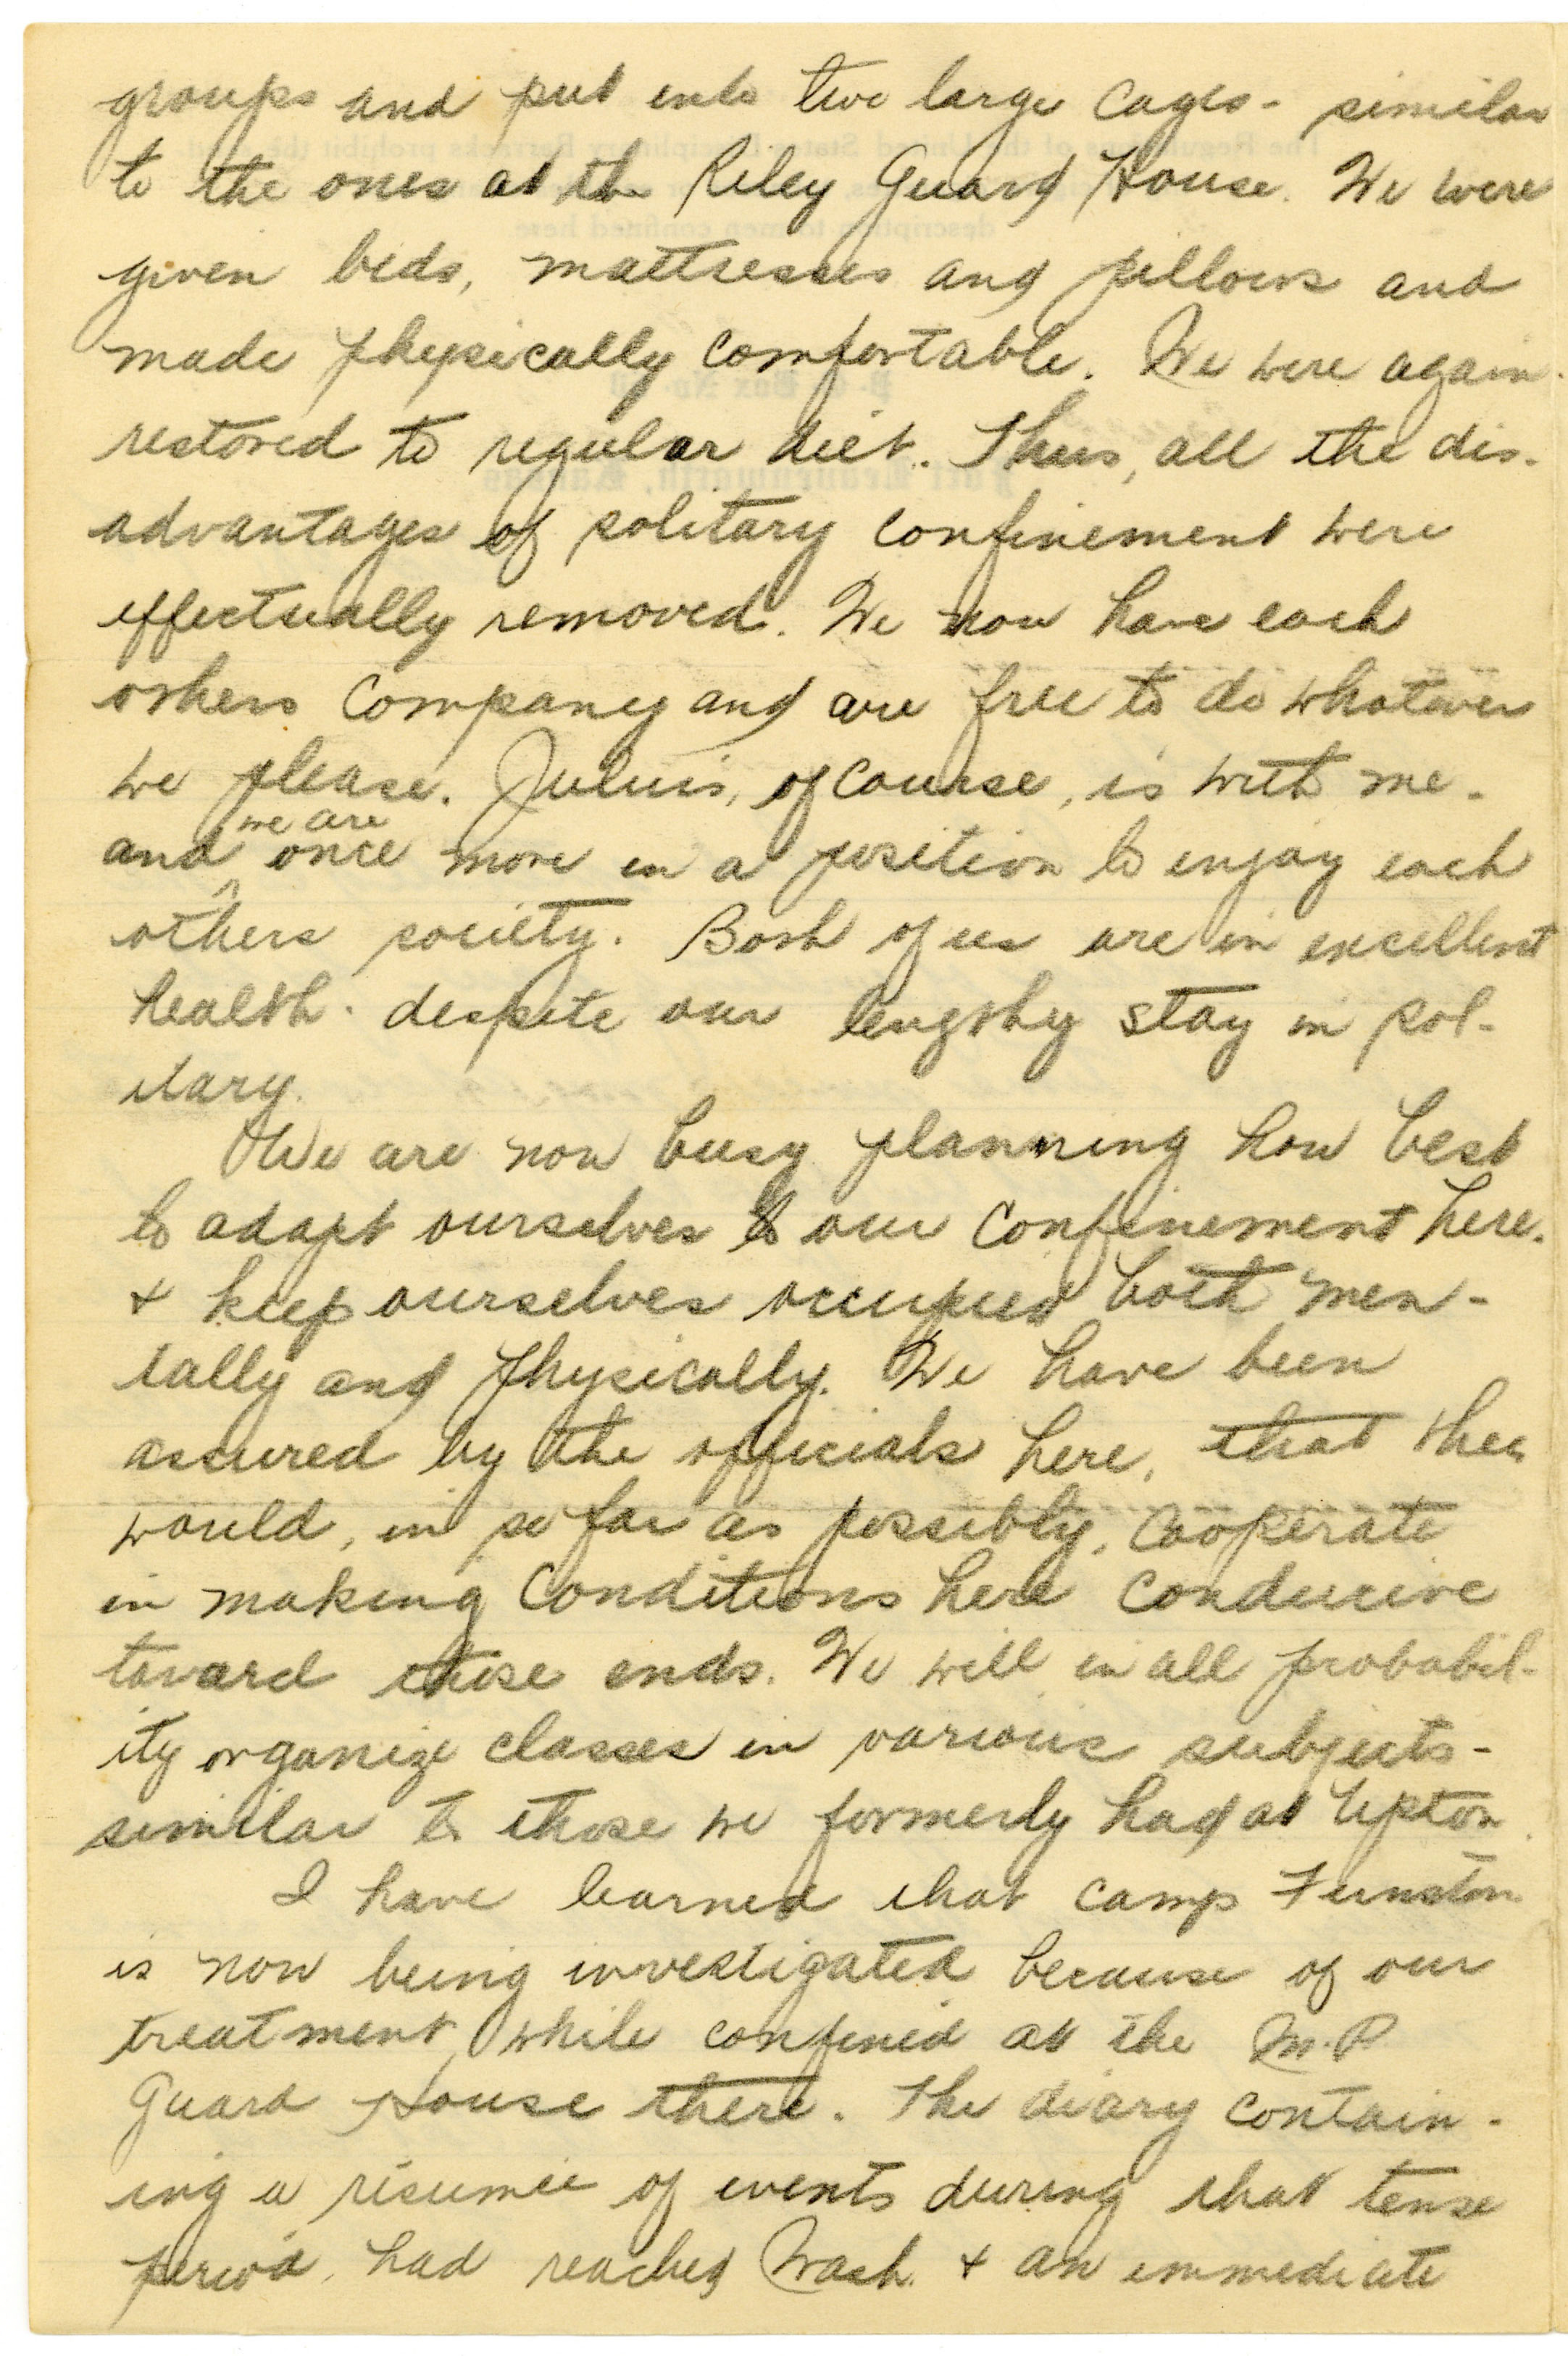 groups and put into two large cages - similar
to the ones at the Riley Guard House. We were
given beds, mattresses and pillows and
made physically comfortable. We were again
restored to regular diet. Thus, all the dis-
advantages of solitary confinement were
effectually removed. We now have each
others company and are free to do whatever
we please. Julius, of course, is with me -
and we are once more in a position to enjoy each
others society. Both of us are in excellent
health - despite our lengthy stay in sol-
itary.
We are now busy planning how best
to adapt ourselves to our confinement here.
+ keep ourselves occupied both men-
tally and physically. We have been
assured by the officials here, that they
would, in so far as possibly, coöperate
in making conditions here conducive
toward those ends. We will in all probabil-
ity organize classes in various subjects -
similar to those we formerly had at Upton.
I have learned that Camp Funston
is now being investigated because of our
treatment, while confined at the M.P.
Guard House there. The diary contain-
ing a résumée of events during that tense
period, had reached Wash. + an immediate